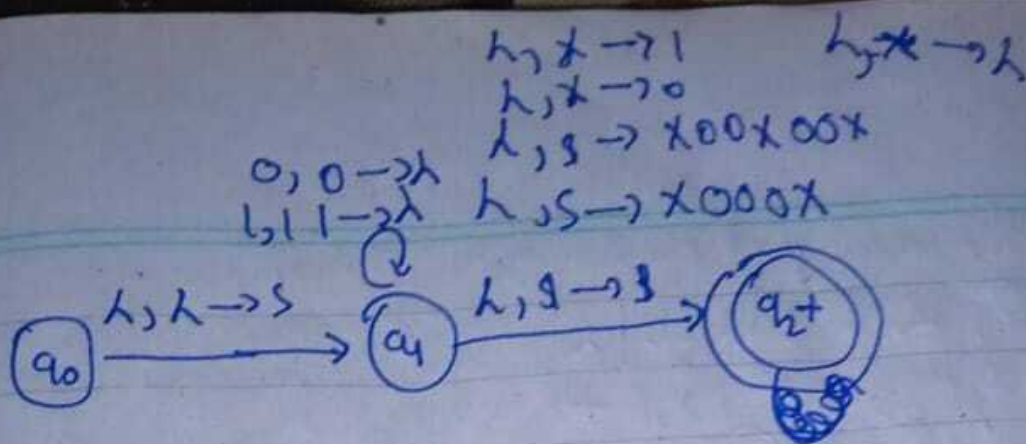 λ, x → 1 λ, x → λ
λ, x → 0
λ, $ → X00X00X
0, 0 → λ
1, 1 1 → λ λ, S → X000X
λ, λ → S λ, $ → $
q₀ q₁ q₂+